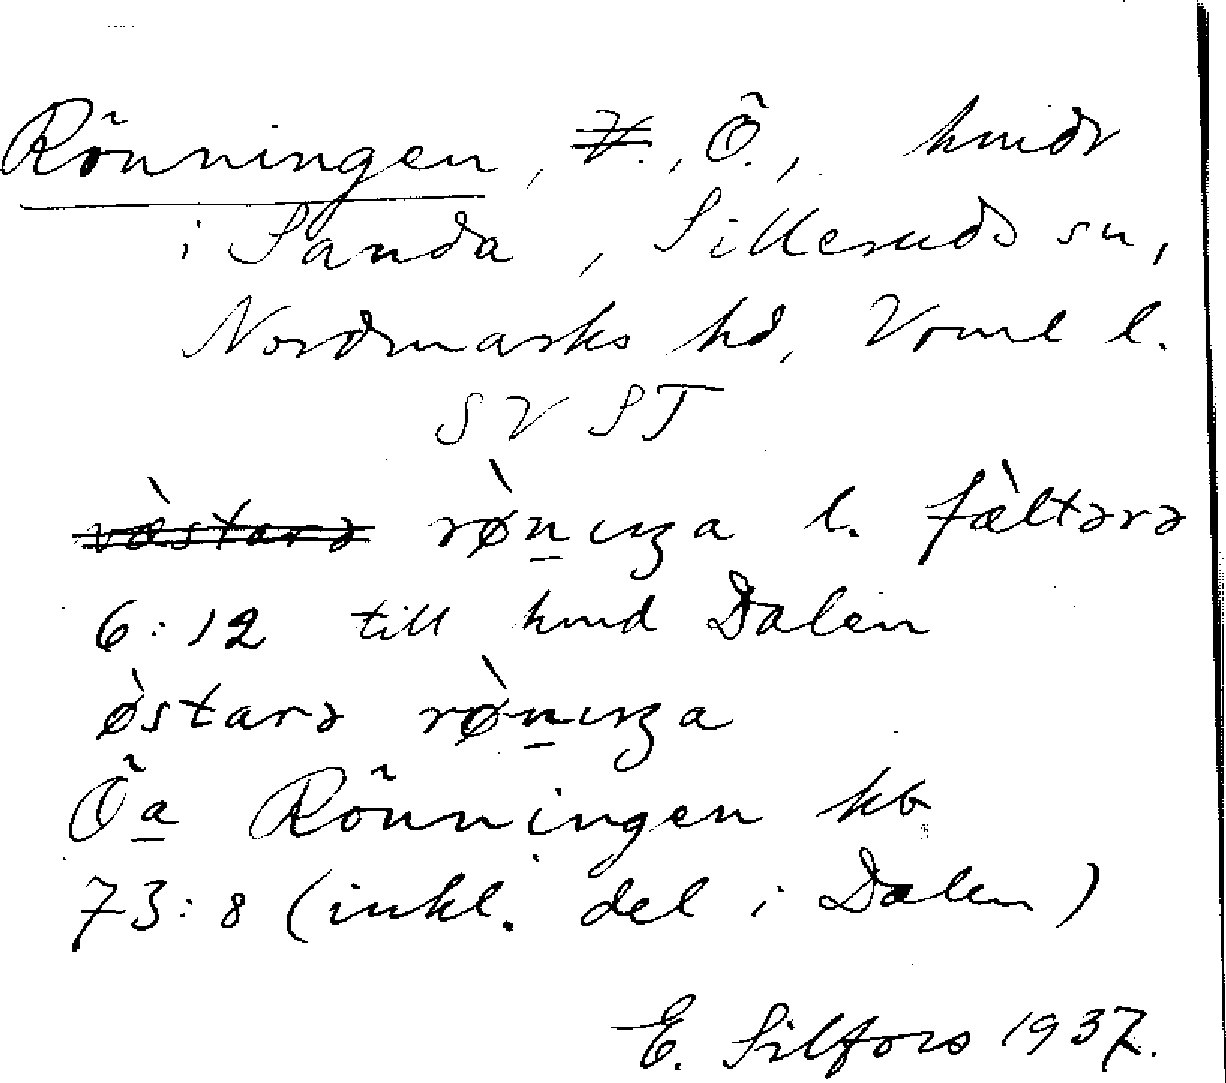 Rönningen, V., Ö., hmdr
i Sanda, Silleruds sn,
Nordmarks hd, Vrml l.
SV ST
væ̀stara rø̀n̠ıŋa l. fæ̀ltərə
6:12 till hmd Dalen
ø̀starə rø̀n̠ıŋa
Öa Rönningen kb
73:8 (inkl. del i Dalen)
E. Silfors 1937.